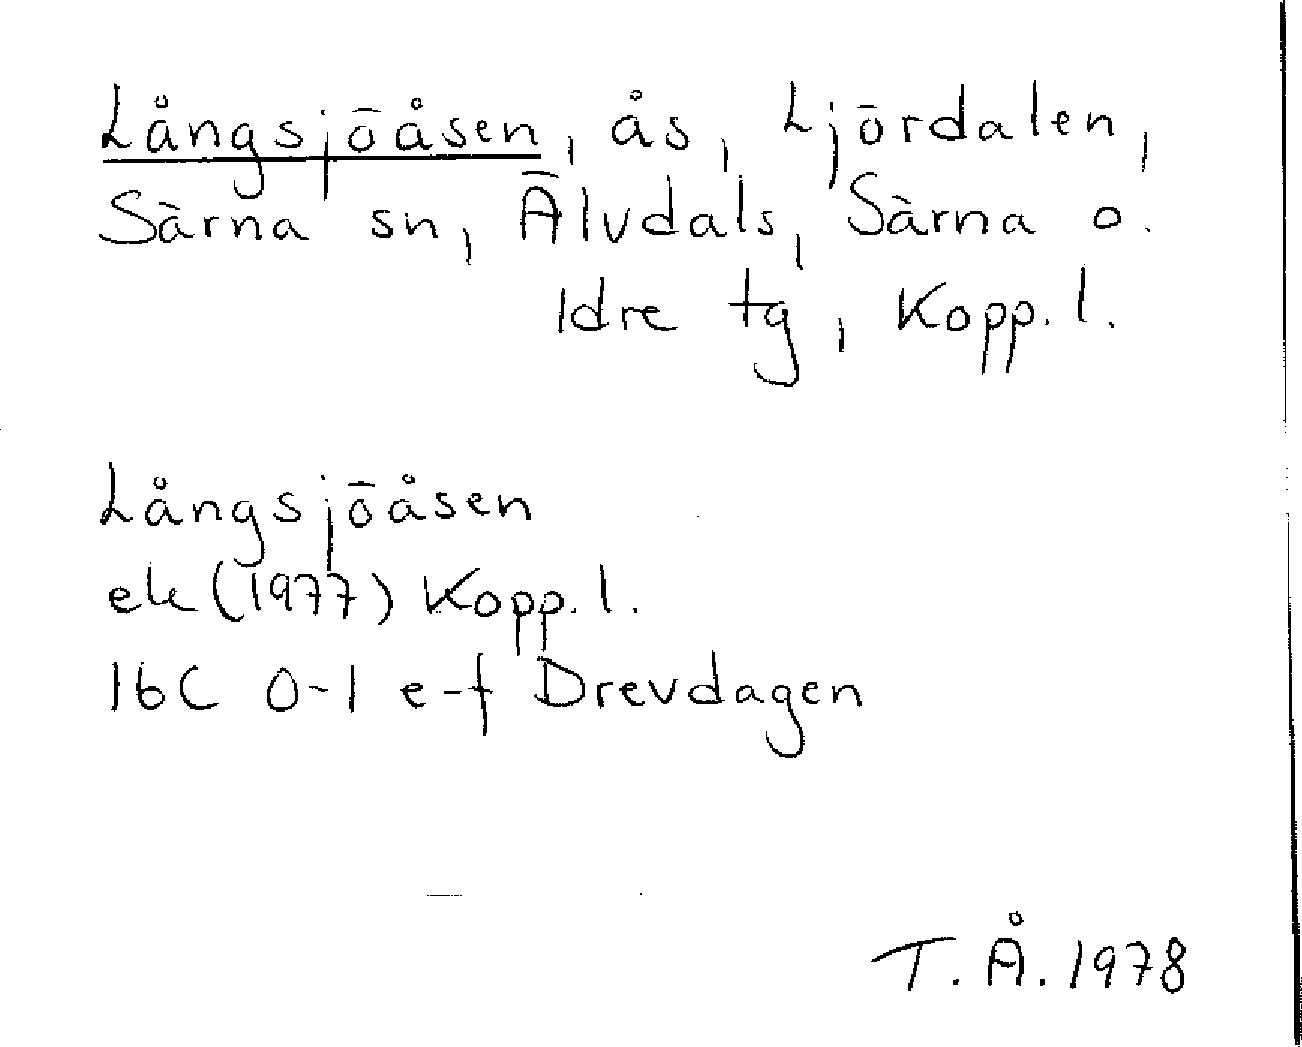 Långsjöåsen, ås, Ljördalen,
Särna sn, Älvdals, Särna o.
Idre tg, Kopp. l.
Långsjöåsen
ek (1977) Kopp. l.
16C 0-1 e-f Drevdagen
T. Å. 1978